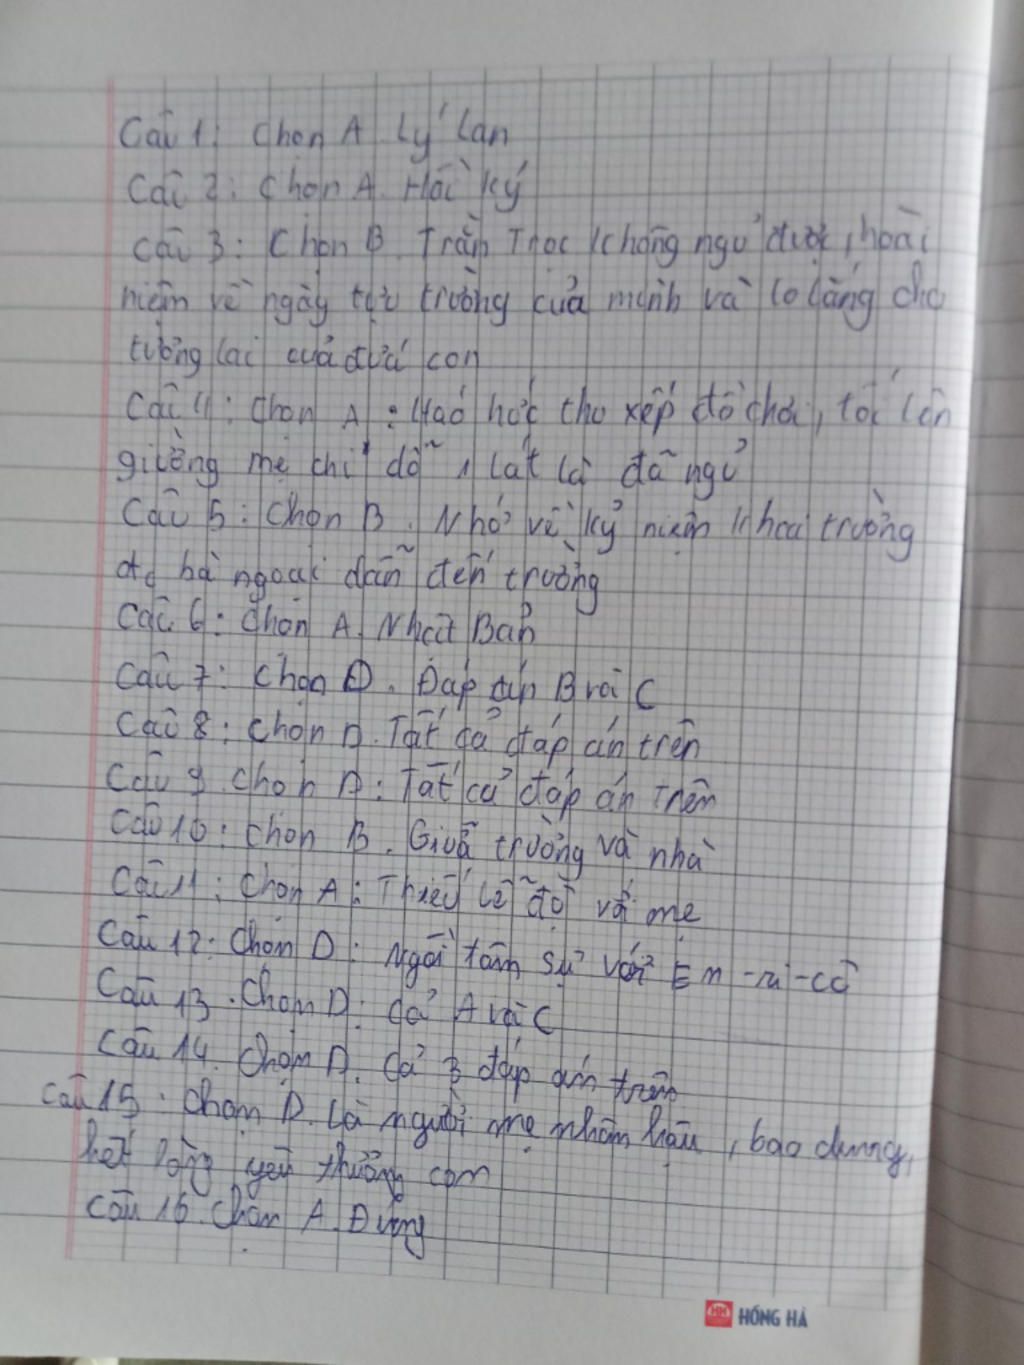 Câu 1: Chọn A. Lý Lan
Câu 2: Chọn A. Hồi ký
Câu 3: Chọn B. Trằn Trọc không ngủ được, hoài
niệm về ngày tựu trường của mình và lo lắng cho
tương lai của đứa con
Câu 4: Chọn A: Háo hức thu xếp đồ chơi, tối lên
giường mẹ chỉ dỗ 1 lát là đã ngủ
Câu 5: Chọn B. Nhớ về kỷ niệm khai trường
đc bà ngoại dẫn đến trường
Câu 6: Chọn A. Nhật Bản
Câu 7: Chọn D. Đáp án B và C
Câu 8: Chọn D. Tất cả đáp án trên
Câu 9. Chọn D: Tất cả đáp án Trên
Câu 10: Chọn B. Giữa trường và nhà
Câu 11: Chọn A: Thiếu lễ độ với mẹ
Câu 12: Chọn D: Ngồi tâm sự với En-ri-cô
Câu 13. Chọn D: Cả A và C
Câu 14. Chọn D. Cả 3 đáp án trên
Câu 15: Chọn D. Là người mẹ nhân hậu, bao dung,
hết lòng yêu thương con
Câu 16. Chọn A. Đúng
HH HỒNG HÀ